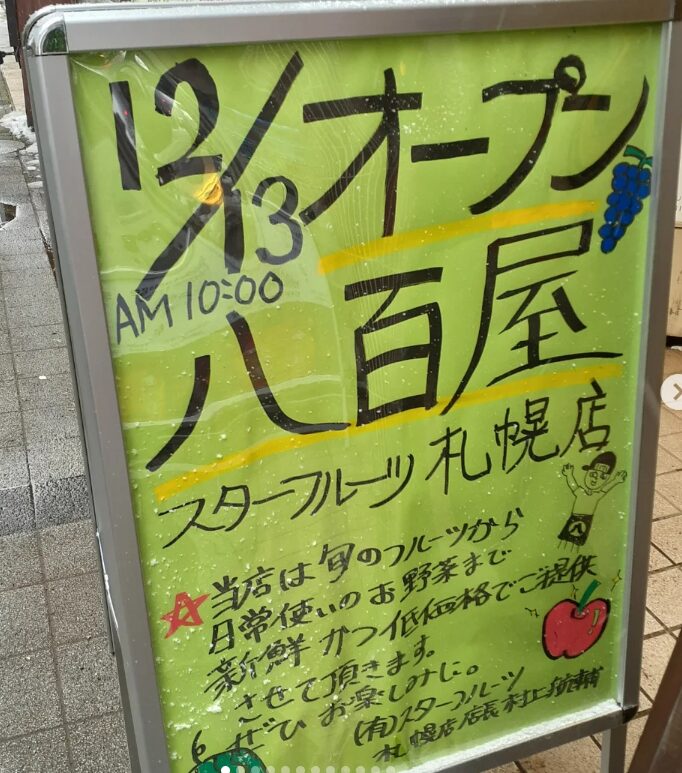 12/13 オープン
AM 10:00
八百屋
スターフルーツ 札幌店
当店は旬のフルーツから
日常使いのお野菜まで
新鮮かつ低価格でご提供
させて頂きます。
ぜひ お楽しみに。
(有)スターフルーツ
札幌店 店長 村上